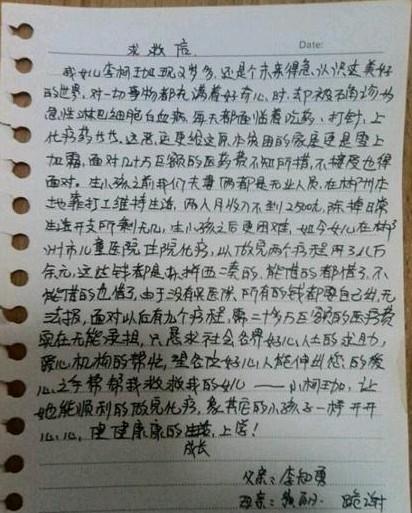 求救信
Date:
我女儿李柯珈现2岁多,还是个未来得急认识这美好
的世界,对一切事物都充满着好奇心时,却被确诊为
急性淋巴细胞白血病,每天都面临着吃药,打针,上
化疗药
这来还更给这原本贫困的家庭还是雪上
加霜,面对几十万巨额的医药费不知所措,不接受也得
面对。生小孩之前我们夫妻俩都是无业人员,在郴州本
地靠打工维持生活,两人月收入不到2500元,除掉日常
生活开支所剩无几,生小孩之后更困难,如今女儿在郴
州市儿童医院住院化疗,从做完两个疗程用了八万
余元,这些钱都是东拼西凑的,能借的都借了,不
能借的也借了,由于没有医保,所有的钱都要自己出,无
法报,面对以后有九个疗程,需二十多万巨额的医药费
实在无能承担,只恳求社会各界好心人士的求助,
爱心机构的帮忙,望各位好心人能伸出您的援
心之手帮帮我救救我的女儿——小柯珈,让
她能顺利的做完化疗,象其它的小孩子一样开开
心心,健健康康的生活,上学!
成长
父亲:李知勇
母亲:
跪谢